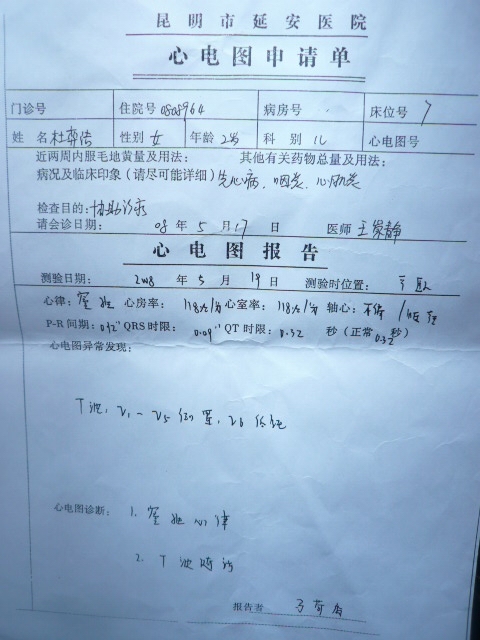 昆明市延安医院
心电图申请单
门诊号 住院号 0808964 病房号 床位号 7
姓 名 性别 女 年龄 2岁 科 别 儿 心电图号
近两周内服毛地黄量及用法： 其他有关药物总量及用法：
病况及临床印象（请尽可能详细）先心病，咽炎，心肌炎
检查目的：协助诊疗
请会诊日期： 08 年 5 月 17 日 医师
心电图报告
测验日期： 2008 年 5 月 19 日 测验时位置： 平卧
心律：窦性 心房率： 118次/分 心室率： 118次/分 轴心：不偏
P-R 间期：0.12" QRS 时限： 0.09" QT 时限： 0.32 秒（正常 0.32 秒）
心电图异常发现：
T波，V1－V5倒置，V6低平
心电图诊断： 1. 窦性心律
2. T波
报告者